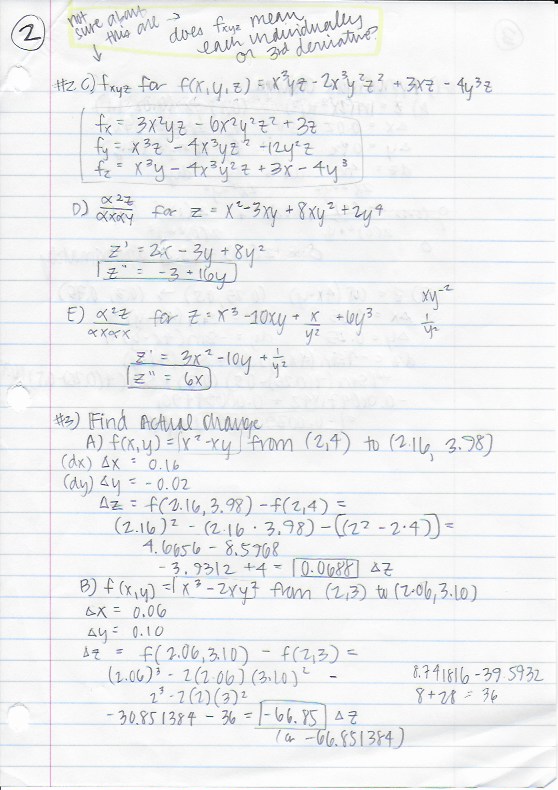 2
not sure about this one → does fxyz mean
each individually
or 3rd derivative?
#2 C) fxyz for f(x,y,z) = x³yz - 2x³y²z² + 3xz - 4y³z
fx = 3x²yz - 6x²y²z² + 3z
fy = x³z - 4x³yz² - 12y²z
fz = x³y - 4x³y²z + 3x - 4y³
D) α²z/αxαy for z = x² - 3xy + 8xy² + 2y⁴
z' = 2x - 3y + 8y²
z" = -3 + 16y
xy⁻²
E) α²z/αxαx for z = x³ - 10xy + x/y² + 6y³ 1/y²
z' = 3x² - 10y + 1/y²
z" = 6x
#3) Find Actual change
A) f(x,y) = x² - xy from (2,4) to (2.16, 3.98)
(dx) Δx = 0.16
(dy) Δy = -0.02
Δz = f(2.16, 3.98) - f(2,4) =
(2.16)² - (2.16 · 3.98) - ((2² - 2·4)) =
4.6656 - 8.5968
-3.9312 + 4 = 0.0688 Δz
B) f(x,y) = x³ - 2xy² from (2,3) to (2.06, 3.10)
Δx = 0.06
Δy = 0.10
Δz = f(2.06, 3.10) - f(2,3) =
(2.06)³ - 2(2.06)(3.10)² - 8.741816 - 39.5932
2³ - 2(2)(3)² 8 + 28 = 36
-30.851384 - 36 = -66.85 Δz
(or -66.851384)